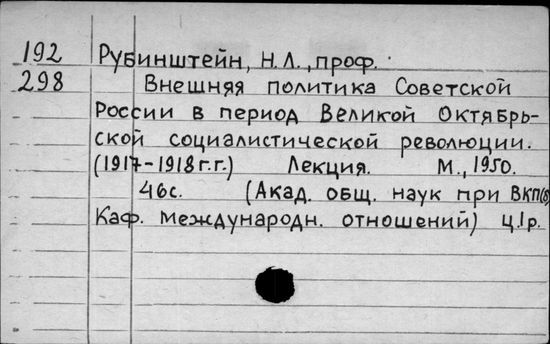 192 Рубинштейн, Н.Л., проф.
298 Внешняя политика Советской
России в период Великой Октябрь-
ской социалистической революции.
(1917-1918г.г.) Лекция. М., 1950.
46с. (Акад. общ. наук при ВКП(б)
Каф. международн. отношений) ц.1р.